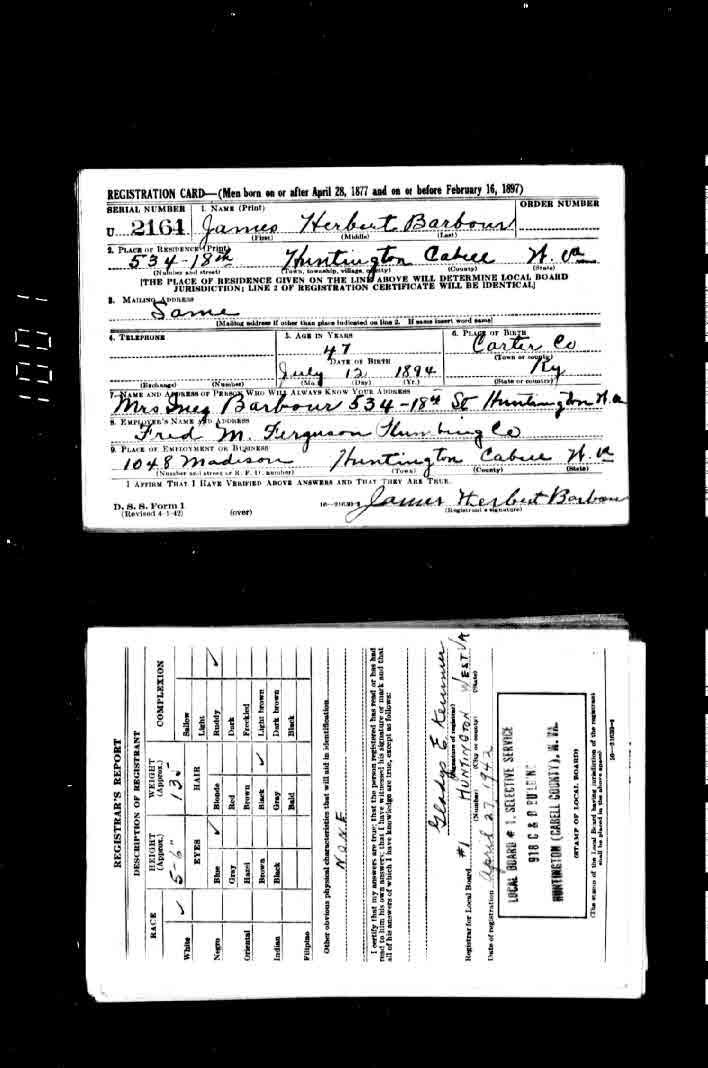 1001
REGISTRATION CARD—(Men born on or after April 28, 1877 and on or before February 16, 1897)
SERIAL NUMBER 1. NAME (Print) ORDER NUMBER
U 2164 James Herbert Barbour
(First) (Middle) (Last)
2. PLACE OF RESIDENCE (Print)
534-18th Huntington Cabell W. Va
(Number and street) (Town, township, village, or city) (County) (State)
[THE PLACE OF RESIDENCE GIVEN ON THE LINE ABOVE WILL DETERMINE LOCAL BOARD
JURISDICTION; LINE 2 OF REGISTRATION CERTIFICATE WILL BE IDENTICAL]
3. MAILING ADDRESS
Same
[Mailing address if other than place indicated on line 2. If same insert word same]
4. TELEPHONE 5. AGE IN YEARS 6. PLACE OF BIRTH
47 Carter Co
DATE OF BIRTH (Town or county)
July 12 1894 Ky
(Exchange) (Number) (Mo.) (Day) (Yr.) (State or country)
7. NAME AND ADDRESS OF PERSON WHO WILL ALWAYS KNOW YOUR ADDRESS
Mrs Inez Barbour 534-18th St Huntington W. Va
8. EMPLOYER'S NAME AND ADDRESS
Fred M. Ferguson Plumbing Co
9. PLACE OF EMPLOYMENT OR BUSINESS
1048 Madison Huntington Cabell W. Va
(Number and street or R. F. D. number) (Town) (County) (State)
I AFFIRM THAT I HAVE VERIFIED ABOVE ANSWERS AND THAT THEY ARE TRUE.
D. S. S. Form 1 James Herbert Barbour
(Revised 4-1-42) (over) 16—21630-2 (Registrant's signature)
REGISTRAR'S REPORT
DESCRIPTION OF REGISTRANT
RACE HEIGHT (Approx.) WEIGHT (Approx.) COMPLEXION
White ✓ 5-6" 135 Sallow
EYES HAIR Light
Negro Blue ✓ Blonde Ruddy ✓
Gray Red Dark
Oriental Hazel Brown Freckled
Brown Black ✓ Light brown
Indian Black Gray Dark brown
Bald Black
Filipino
Other obvious physical characteristics that will aid in identification
NONE
I certify that my answers are true; that the person registered has read or has had
read to him his own answers; that I have witnessed his signature or mark and that
all of his answers of which I have knowledge are true, except as follows:
Gladys E.
(Signature of registrar)
Registrar for Local Board #1 HUNTINGTON WEST VA
(Number) (City or county) (State)
Date of registration April 27, 1942
LOCAL BOARD # 1, SELECTIVE SERVICE
918 C & O BUILDING
HUNTINGTON (CABELL COUNTY), W. VA.
(STAMP OF LOCAL BOARD)
(The stamp of the Local Board having jurisdiction of the registrant
shall be placed in the above space)
16—21630-2